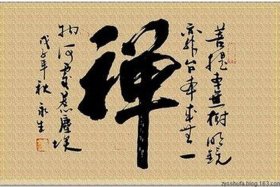 菩提本無樹明鏡
亦非台本來無一
禅
物何處惹塵埃
戊子年秋 永生
zysshufa.blog.163.com